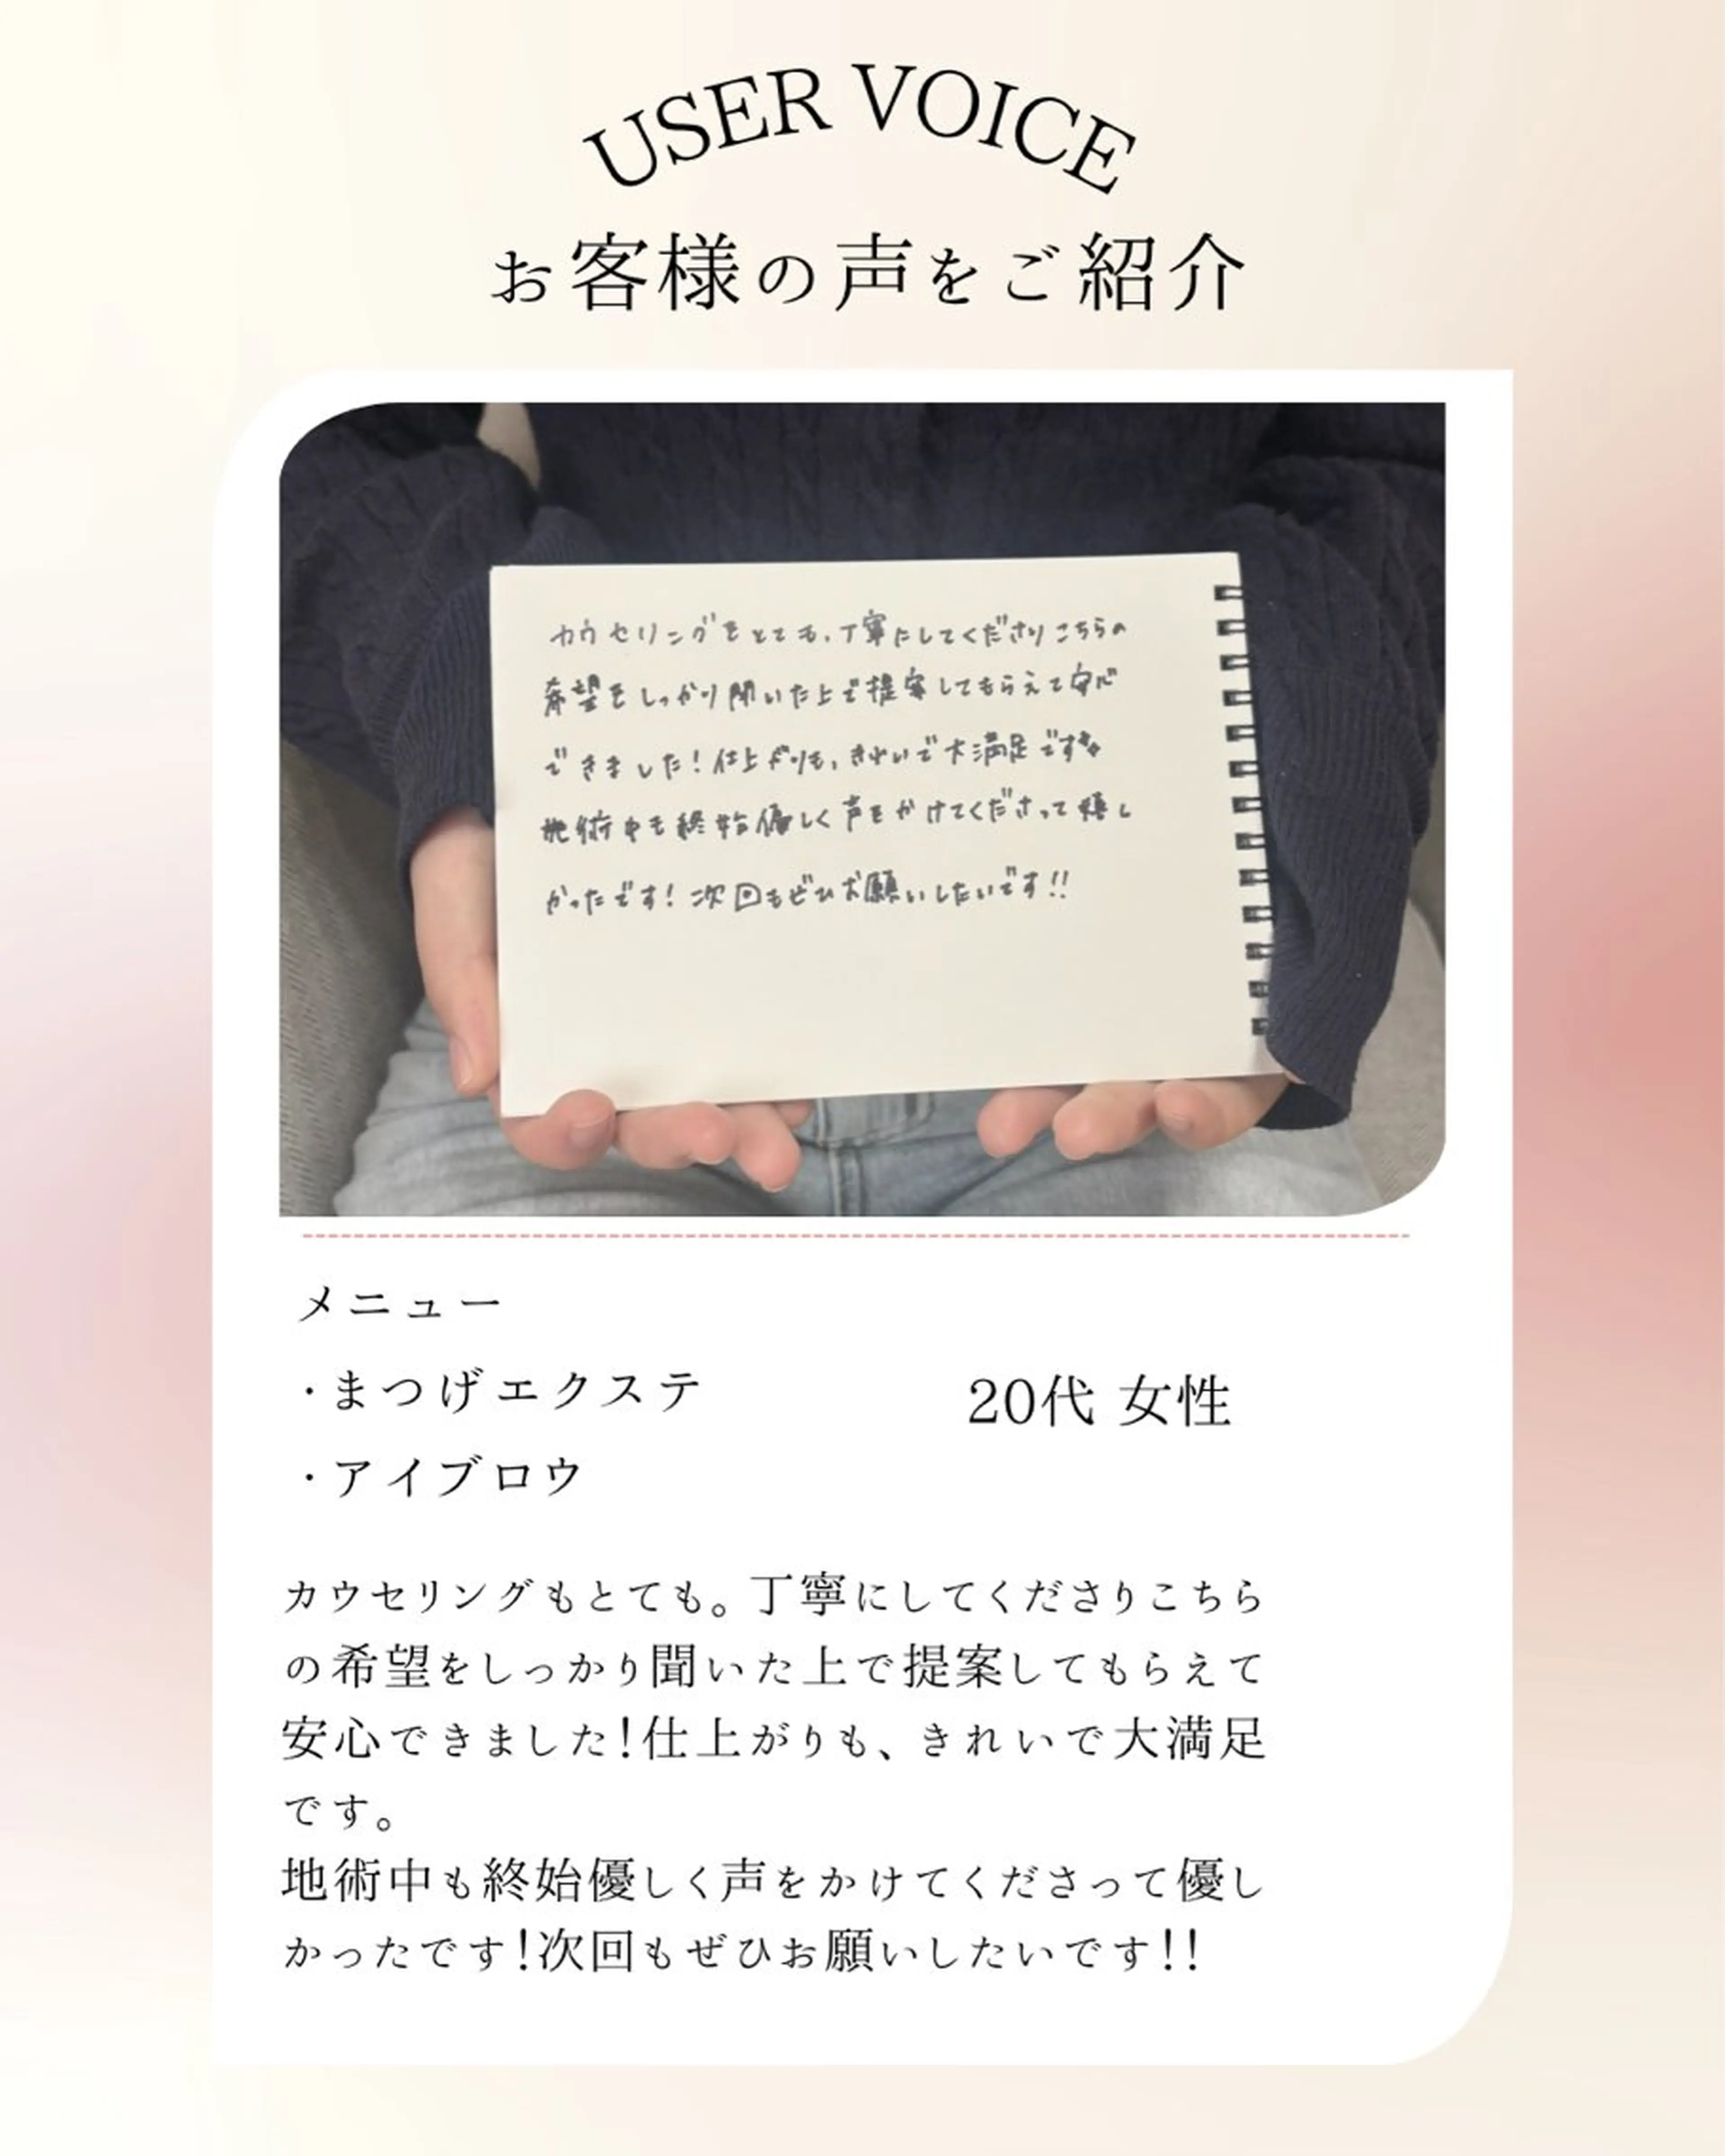 USER VOICE
お客様の声をご紹介
カウセリングをとても、丁寧にしてくださりこちらの
希望をしっかり聞いた上で提案してもらえて安心
できました！仕上がりも、きれいで大満足です
施術中も終始優しく声をかけてくださって嬉し
かったです！次回もぜひお願いしたいです!!
メニュー
・まつげエクステ
20代 女性
・アイブロウ
カウセリングもとても。丁寧にしてくださりこちら
の希望をしっかり聞いた上で提案してもらえて
安心できました！仕上がりも、きれいで大満足
です。
地術中も終始優しく声をかけてくださって優し
かったです！次回もぜひお願いしたいです!!